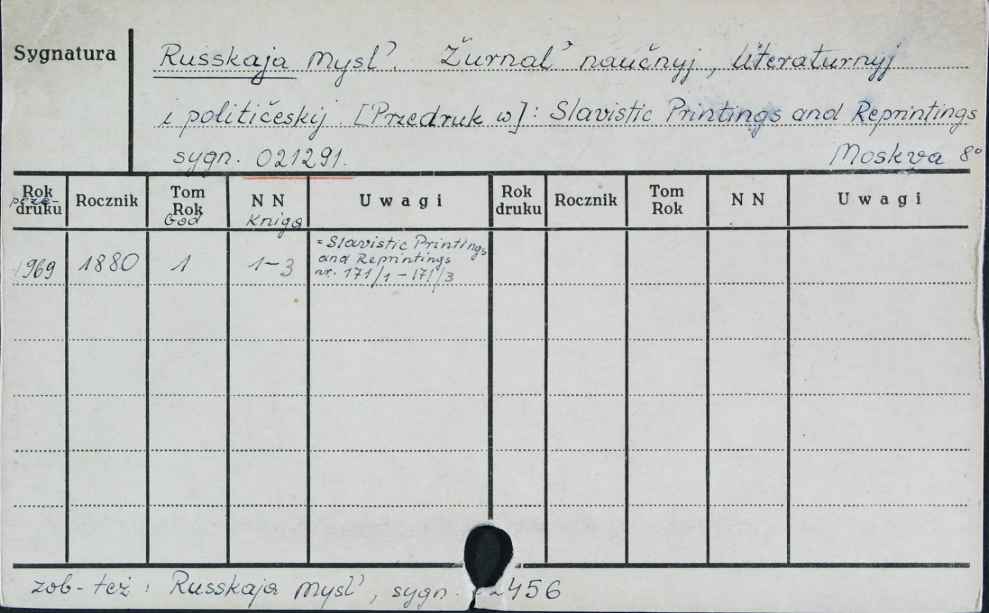 Sygnatura
Russkaja Mysl'. Žurnal' naučnyj, literaturnyj
i političeskij. [Przedruk w]: Slavistic Printings and Reprintings
sygn. 021291. Moskva 8°
Rok druku Rocznik Tom Rok God N N Kniga Uwagi Rok druku Rocznik Tom Rok N N Uwagi
1969 1880 1 1-3 = Slavistic Printings
and Reprintings
nr. 171/1 - 171/3
zob. też: Russkaja Mysl', sygn. 2456